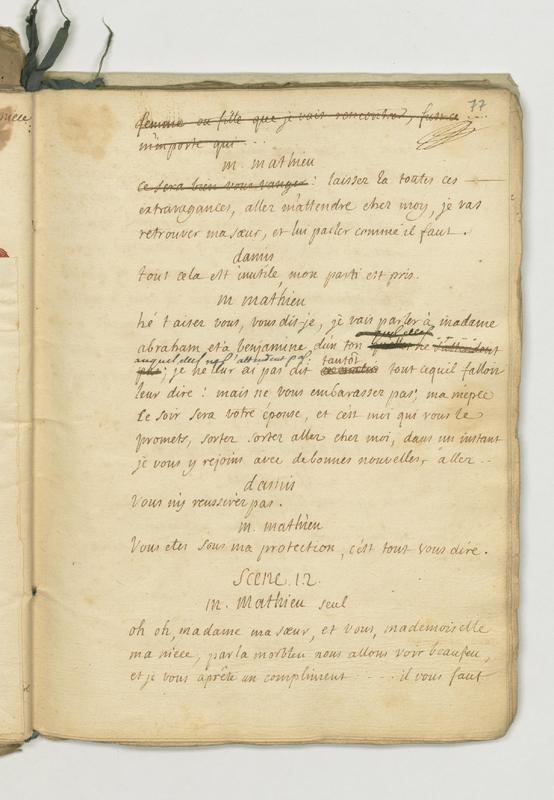 77
femme ou fille que je vais rencontrer, fust ce ...
n'importe qui ...
m. mathieu
ce sera bien vous vanger : laissez la toutes ces
extravagances, allez m'attendre chez moy, je vas
retrouver ma sœur, et lui parler comme il faut.
damis
tout cela est inutile, mon parti est pris.
m mathieu
hé taisez vous, vous dis-je, je vais parler à madame
abraham et à benjamine d'un ton ne s'attendent
auquel elles ne s'attendent pas: tantôt
; je ne leur ai pas dit tout cequil falloit
leur dire : mais ne vous embarassez pas, ma niepce
ce soir sera votre épouse, et cest moi qui vous le
promets, sortez sortez allez chez moi, dans un instant
je vous y rejoins avec de bonnes nouvelles, allez ..
damis
Vous n'y reussirez pas.
m. mathieu
Vous etes sous ma protection, c'est tout vous dire.
Scene. 12.
m. mathieu seul
oh oh, madame ma sœur, et vous, mademoiselle
ma niece, par la morbleu nous allons voir beau feu,
et je vous aprête un compliment .... il vous faut